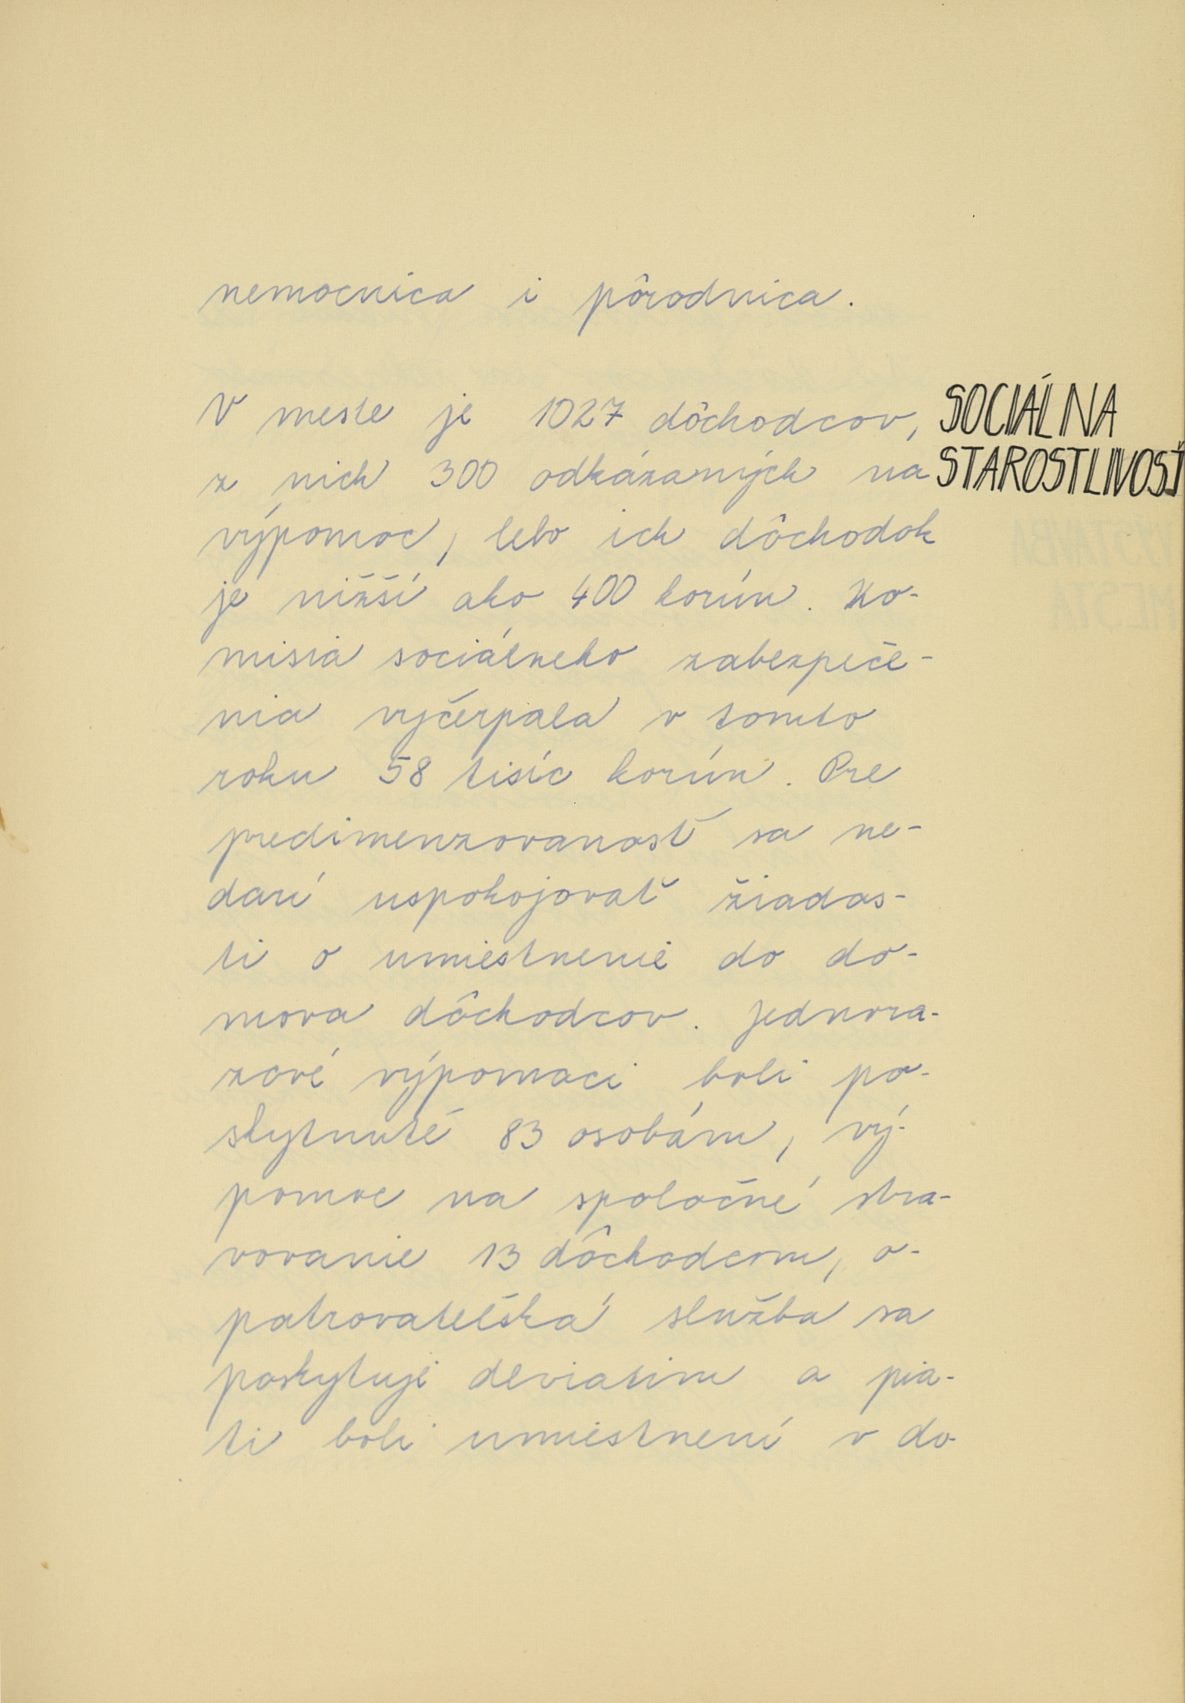 nemocnica i pôrodnica.
SOCIÁLNA
STAROSTLIVOSŤ
V meste je 1027 dôchodcov,
z nich 300 odkázaných na
výpomoc, lebo ich dôchodok
je nižší ako 400 korún. Ko-
misia sociálneho zabezpeče-
nia vyčerpala v tomto
roku 58 tisíc korún. Pre
predimenzovanosť sa ne-
darí uspokojovať žiados-
ti o umiestnenie do do-
mova dôchodcov. Jednora-
zové výpomoci boli po-
skytnuté 83 osobám, vý-
pomoc na spoločné stra-
vovanie 13 dôchodcom, o-
patrovateľská služba sa
poskytuje deviatim a pia-
ti boli umiestnení v do-